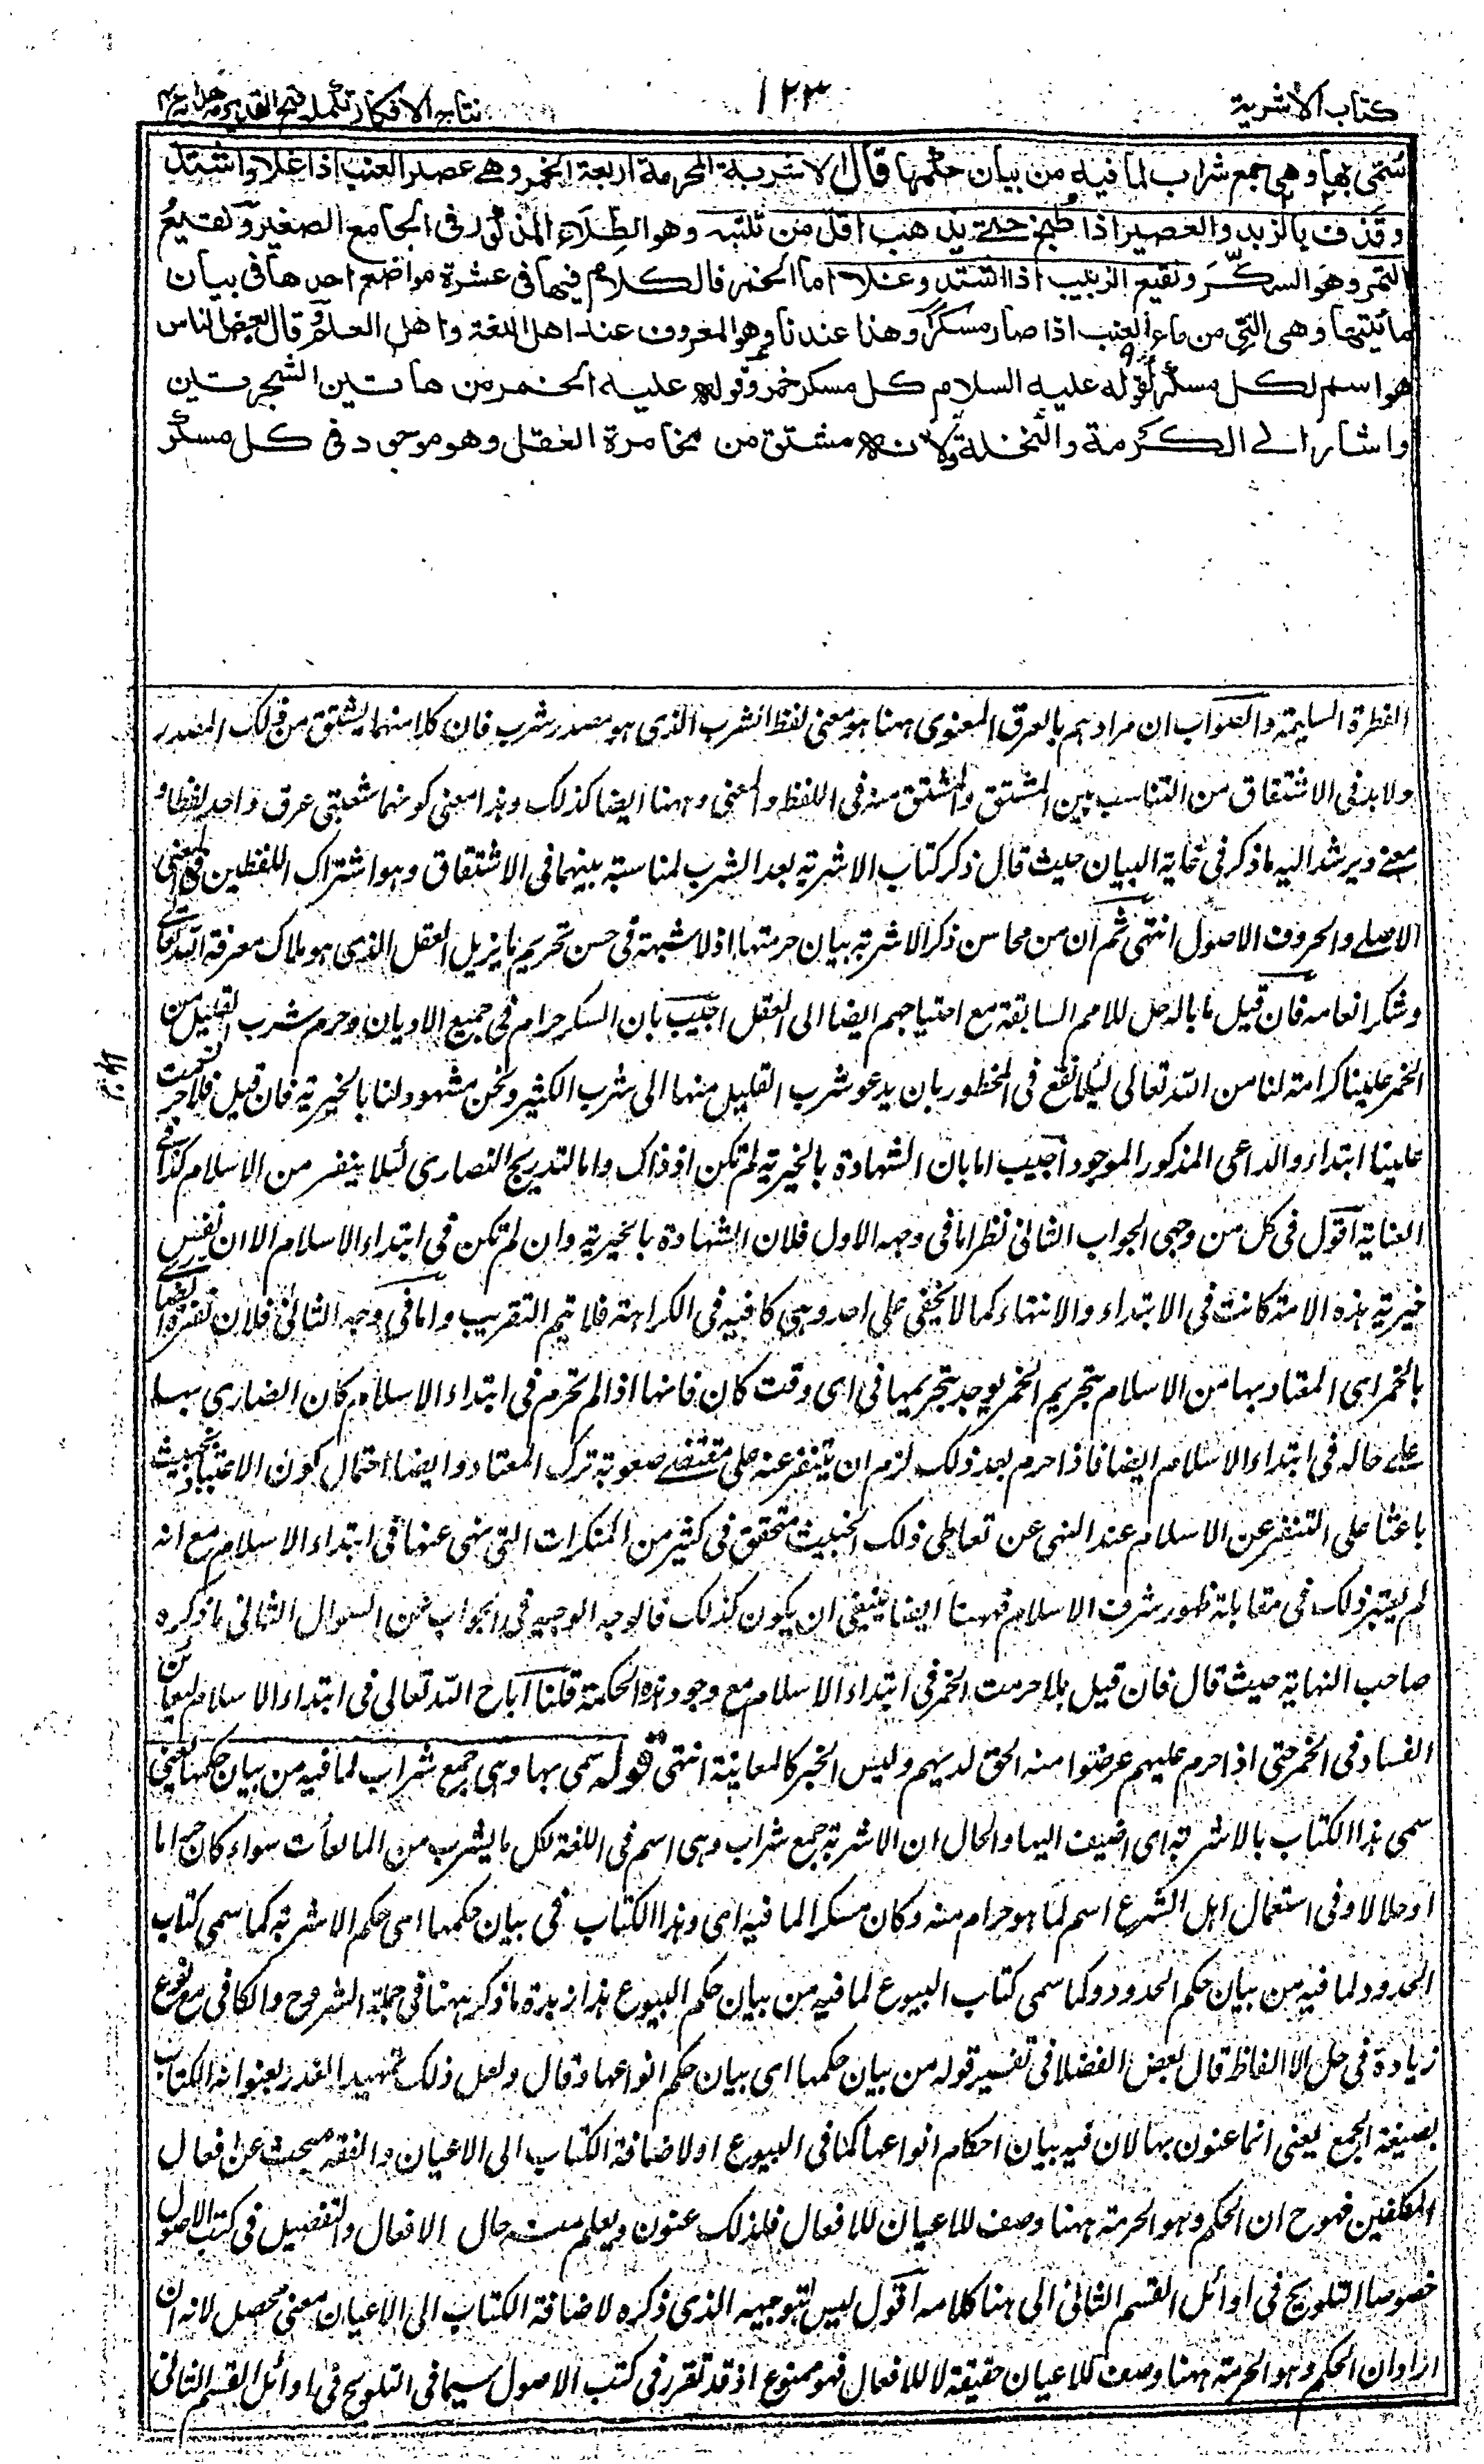 كتاب الأشربة
١٢٣
نتائج الافكار تكملة فتح القدير مع هداية ج ٤
سُمّى بها وهى جمع شراب لما فيه من بيان حكمها قال الاشربة المحرمة اربعة الخمر وهى عصير العنب اذا غلا واشتد
وقذف بالزبد والعصير اذا طبخ حتى يذهب اقل من ثلثيه وهو الطِلاء المذكور فى الجامع الصغير ونقيعُ
التمر وهو السكّر ونقيع الزبيب اذا اشتد وغلا اما الخمر فالكلام فيها فى عشرة مواضع احدها فى بيان
مائيتها وهى النّيّ من ماء العنب اذا صار مسكرًا وهذا عندنا وهو المعروف عند اهل اللغة واهل العلم وقال بعض الناس
هو اسم لكل مسكر لقوله عليه السلام كل مسكر خمر وقوله عليه الخمر من هاتين الشجرتين
واشار الى الكَرمة والنخلة ولانه مشتق من مخامرة العقل وهو موجود فى كل مسكر
الفطرة السليمة والصواب ان مرادهم بالعرق المعنوى ههنا هو معنى لفظ الشرب الذى هو مصدر شرب فان كلا منهما يشتق من ذلك المصدر
ولا بد فى الاشتقاق من التناسب بين المشتق والمشتق منه فى اللفظ والمعنى وههنا ايضا كذلك وهذا معنى كونهما شعبتى عرق واحد لفظا و
معنى ويرشد اليه ما ذكر فى غاية البيان حيث قال ذكر كتاب الاشربة بعد الشرب لمناسبة بينهما فى الاشتقاق وهو اشتراك اللفظين فى المعنى
الاصلى والحروف الاصول انتهى ثم ان من محاسن ذكر الاشربة بيان حرمتها اذ لا شبهة فى حسن تحريم ما يزيل العقل الذى هو ملاك معرفة الله تعالى
وشكر انعامه فان قيل ما باله حل للامم السابقة مع احتياجهم ايضا الى العقل اجيب بان السكر حرام فى جميع الاديان وحرم شرب القليل من
الخمر علينا كرامة لنا من الله تعالى لئلا نقع فى المحظور بان يدعو شرب القليل منها الى شرب الكثير ونحن مشهود لنا بالخيرية فان قيل فهلا حرمت
علينا ابتداء والداعى المذكور الموجود اجيب اما بان الشهادة بالخيرية لم تكن اذ ذاك واما لتدريج النصارى لئلا ينفر من الاسلام كذا فى
العناية اقول فى كل من وجهى الجواب الثانى نظر اما فى وجهه الاول فلان الشهادة بالخيرية وان لم تكن فى ابتداء الاسلام الا ان نفس
خيرية هذه الامة كانت فى الابتداء والانتهاء كما لا يخفى على احد وهى كافية فى الكراهة فلا يتم التقريب واما فى وجهه الثانى فلان نفرة
بالخمر اى المعتاد بها من الاسلام بتحريم الخمر يوجد بتحريمها فى اى وقت كان فانها اذا لم تحرم فى ابتداء الاسلام كان الضارى بها
على حاله فى ابتداء الاسلام ايضا فاذا حرم بعد ذلك لزم ان يتنفر عنه على مقتضى صعوبة ترك المعتاد وايضا احتمال كون الاعتياد بخبيث
باعثا على التنفر عن الاسلام عند النهى عن تعاطى ذلك الخبيث متحقق فى كثير من المنكرات التى نهى عنها فى ابتداء الاسلام مع انه
لم يعتبر ذلك فى مقابلة ظهور شرف الاسلام فههنا ايضا ينبغى ان يكون كذلك فالوجه الوجيه فى الجواب عن السوال الثانى ما ذكره
صاحب النهاية حيث قال فان قيل هلا حرمت الخمر فى ابتداء الاسلام مع وجود هذه الحكمة قلنا اباح الله تعالى فى ابتداء الاسلام ليعاين
الفساد فى الخمر حتى اذا حرم عليهم عرفوا منه الحق لديهم وليس الخبر كالمعاينة انتهى قوله سمى بها وهى جمع شراب لما فيه من بيان حكمها يعنى
سمى هذا الكتاب بالاشربة اى اضيف اليها والحال ان الاشربة جمع شراب وهى اسم فى اللغة لكل ما يشرب من المائعات سواء كان حراما
او حلالا وفى استعمال اهل الشرع اسم لما هو حرام منه وكان مسكرا لما فيه اى وهذا الكتاب فى بيان حكمها اى حكم الاشربة كما سمى كتاب
الحدود لما فيه من بيان حكم الحدود وكما سمى كتاب البيوع لما فيه من بيان حكم البيوع هذا زبدة ما ذكر ههنا فى جملة الشروح والكافى مع نوع
زيادة فى حل الالفاظ قال بعض الفضلا فى تفسير قوله من بيان حكمها اى بيان حكم انواعها وقال ولعل ذلك تمهيد العذر بعنوانه الكتاب
بصيغة الجمع يعنى انما عنون بها لان فيه بيان احكام انواعها كما فى البيوع او لاضافة الكتاب الى الاعيان والفقه يبحث عن افعال
المكلفين فهو ح ان الحكم وهو الحرمة ههنا وصف للاعيان للافعال فلذلك عنون ويعلم منه حال الافعال والتفصيل فى كتب الاصول
خصوصا التلويح فى اوائل القسم الثانى الى هنا كلامه اقول ليس لتوجيهه الذى ذكره لاضافة الكتاب الى الاعيان معنى محصل لانه ان
اراد ان الحكم وهو الحرمة ههنا وصف للاعيان حقيقة لا للافعال فهو ممنوع اذ قد تقرر فى كتب الاصول سيما فى التلويح فى اوائل القسم الثانى